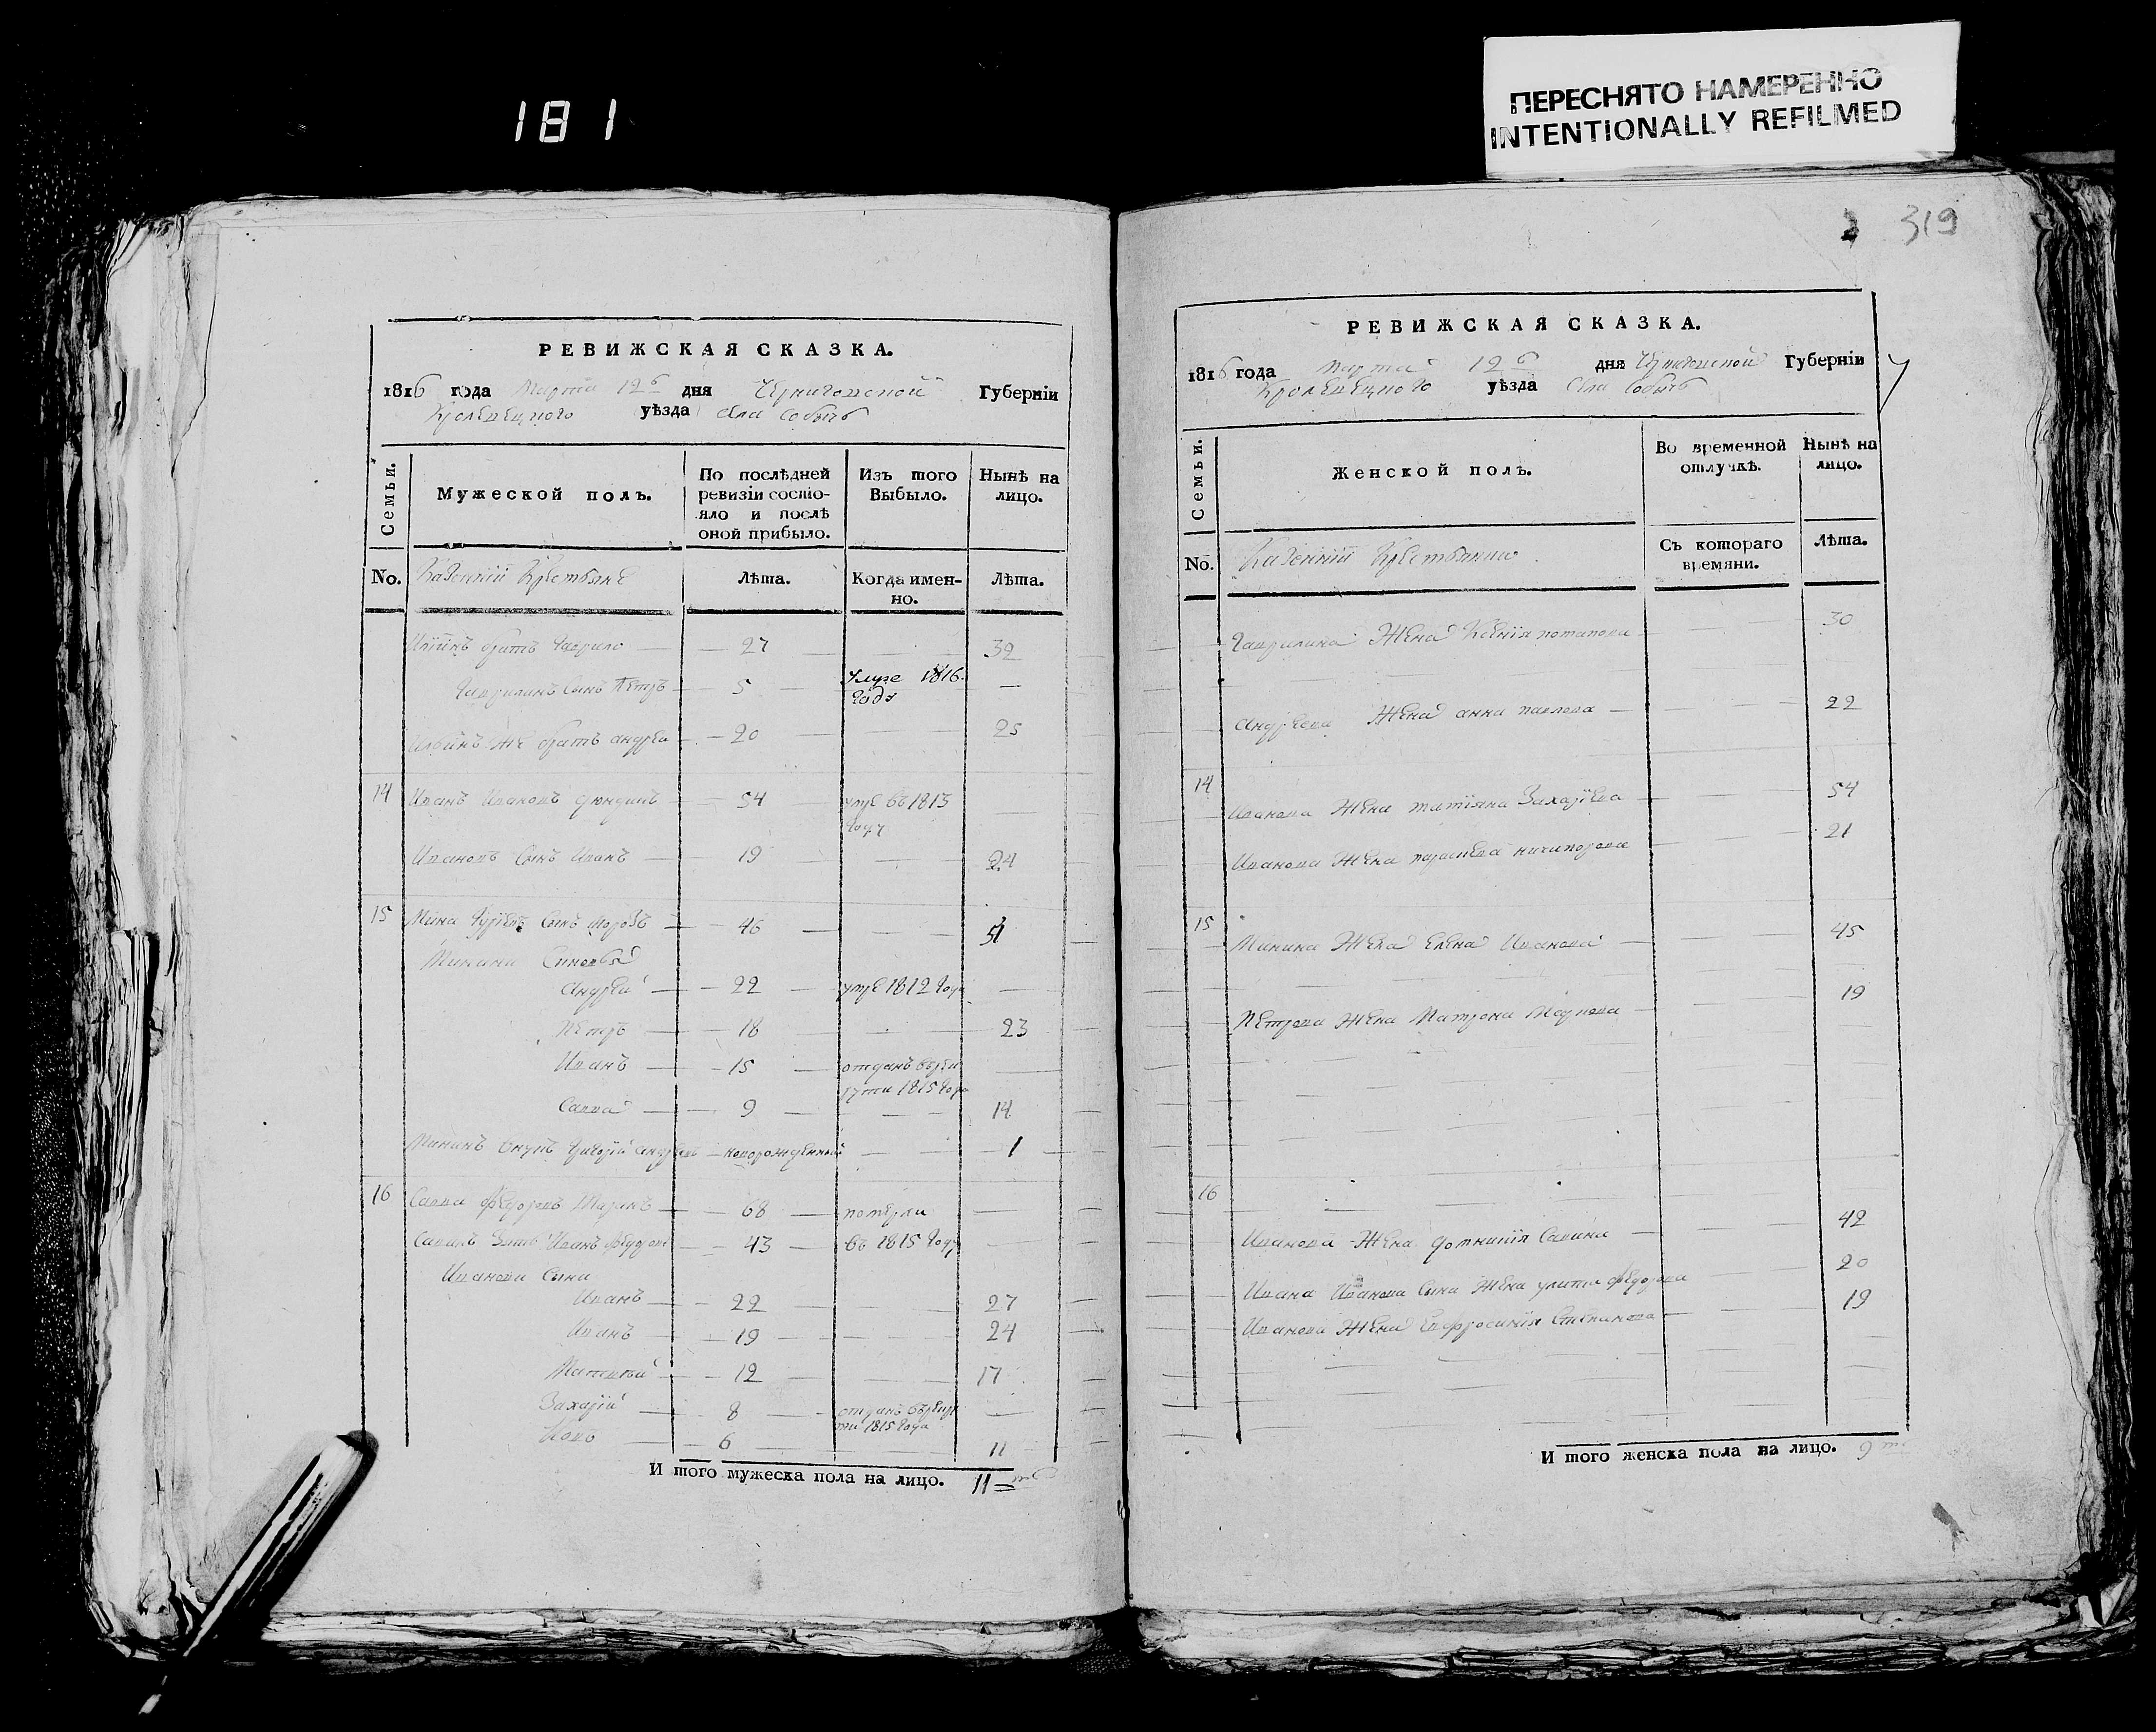 181
ПЕРЕСНЯТО НАМЕРЕННО
INTENTIONALLY REFILMED
319
РЕВИЖСКАЯ СКАЗКА.
1816 года Марта 12 дня Черниговской Губернїи
Кролевецкого уѣзда села Собычь
Семьи.
Мужеской полъ.
По послѣдней ревизіи состояло и послѣ оной прибыло.
Изъ того Выбыло.
Нынѣ на лицо.
No. Казенній Крестьяне
Лѣта.
Когда именно.
Лѣта.
братъ Гаврило 27 32
Гаврилинъ Сынъ Петръ 5 умре 1816 Году
же братъ андрей 20 25
14 Иванъ Ивановъ 54 умре въ 1813 Году
Ивановъ Сынъ Иванъ 19 24
15 Мина Сынъ Морозъ 46 51
Минини Синовья
Андрей 22 умре 1812 Года
Петръ 18 23
Иванъ 15 отданъ въ рекруты 1815 Года
Савва 9 14
Мининъ внукъ Григорій андреевъ новорожденный 1
16 Савва Федоровъ 68 померли
Савинъ зять Иванъ Федоровъ 43 въ 1815 Году
Иванови Сыни
Иванъ 22 27
Иванъ 19 24
Матвѣй 12 17
Захарій 8 отданъ въ рекруты 1815 Года
6 11
И того мужеска пола на лицо. 11
РЕВИЖСКАЯ СКАЗКА.
1816 года Марта 12 дня Черниговской Губернїи
Кролевецкого уѣзда села Собычь
Семьи.
Женской полъ.
Во временной отлучкѣ.
Нынѣ на лицо.
No. Казенній Крестьянки
Съ котораго времяни.
Лѣта.
Гаврилина Жена Ксенія потапова 30
Андреева Жена анна павлова 22
14 Иванова Жена татіяна Захаріева 54
Иванова Жена параскева ничипорова 21
15 Минина Жена Елена Иванова 45
Петрова Жена Матрона Маркова 19
16
Иванова Жена домникія Савина 42
Ивана Иванова Сына Жена улита Федорова 20
Иванова Жена Евфросинія Степанова 19
И того женска пола на лицо. 9